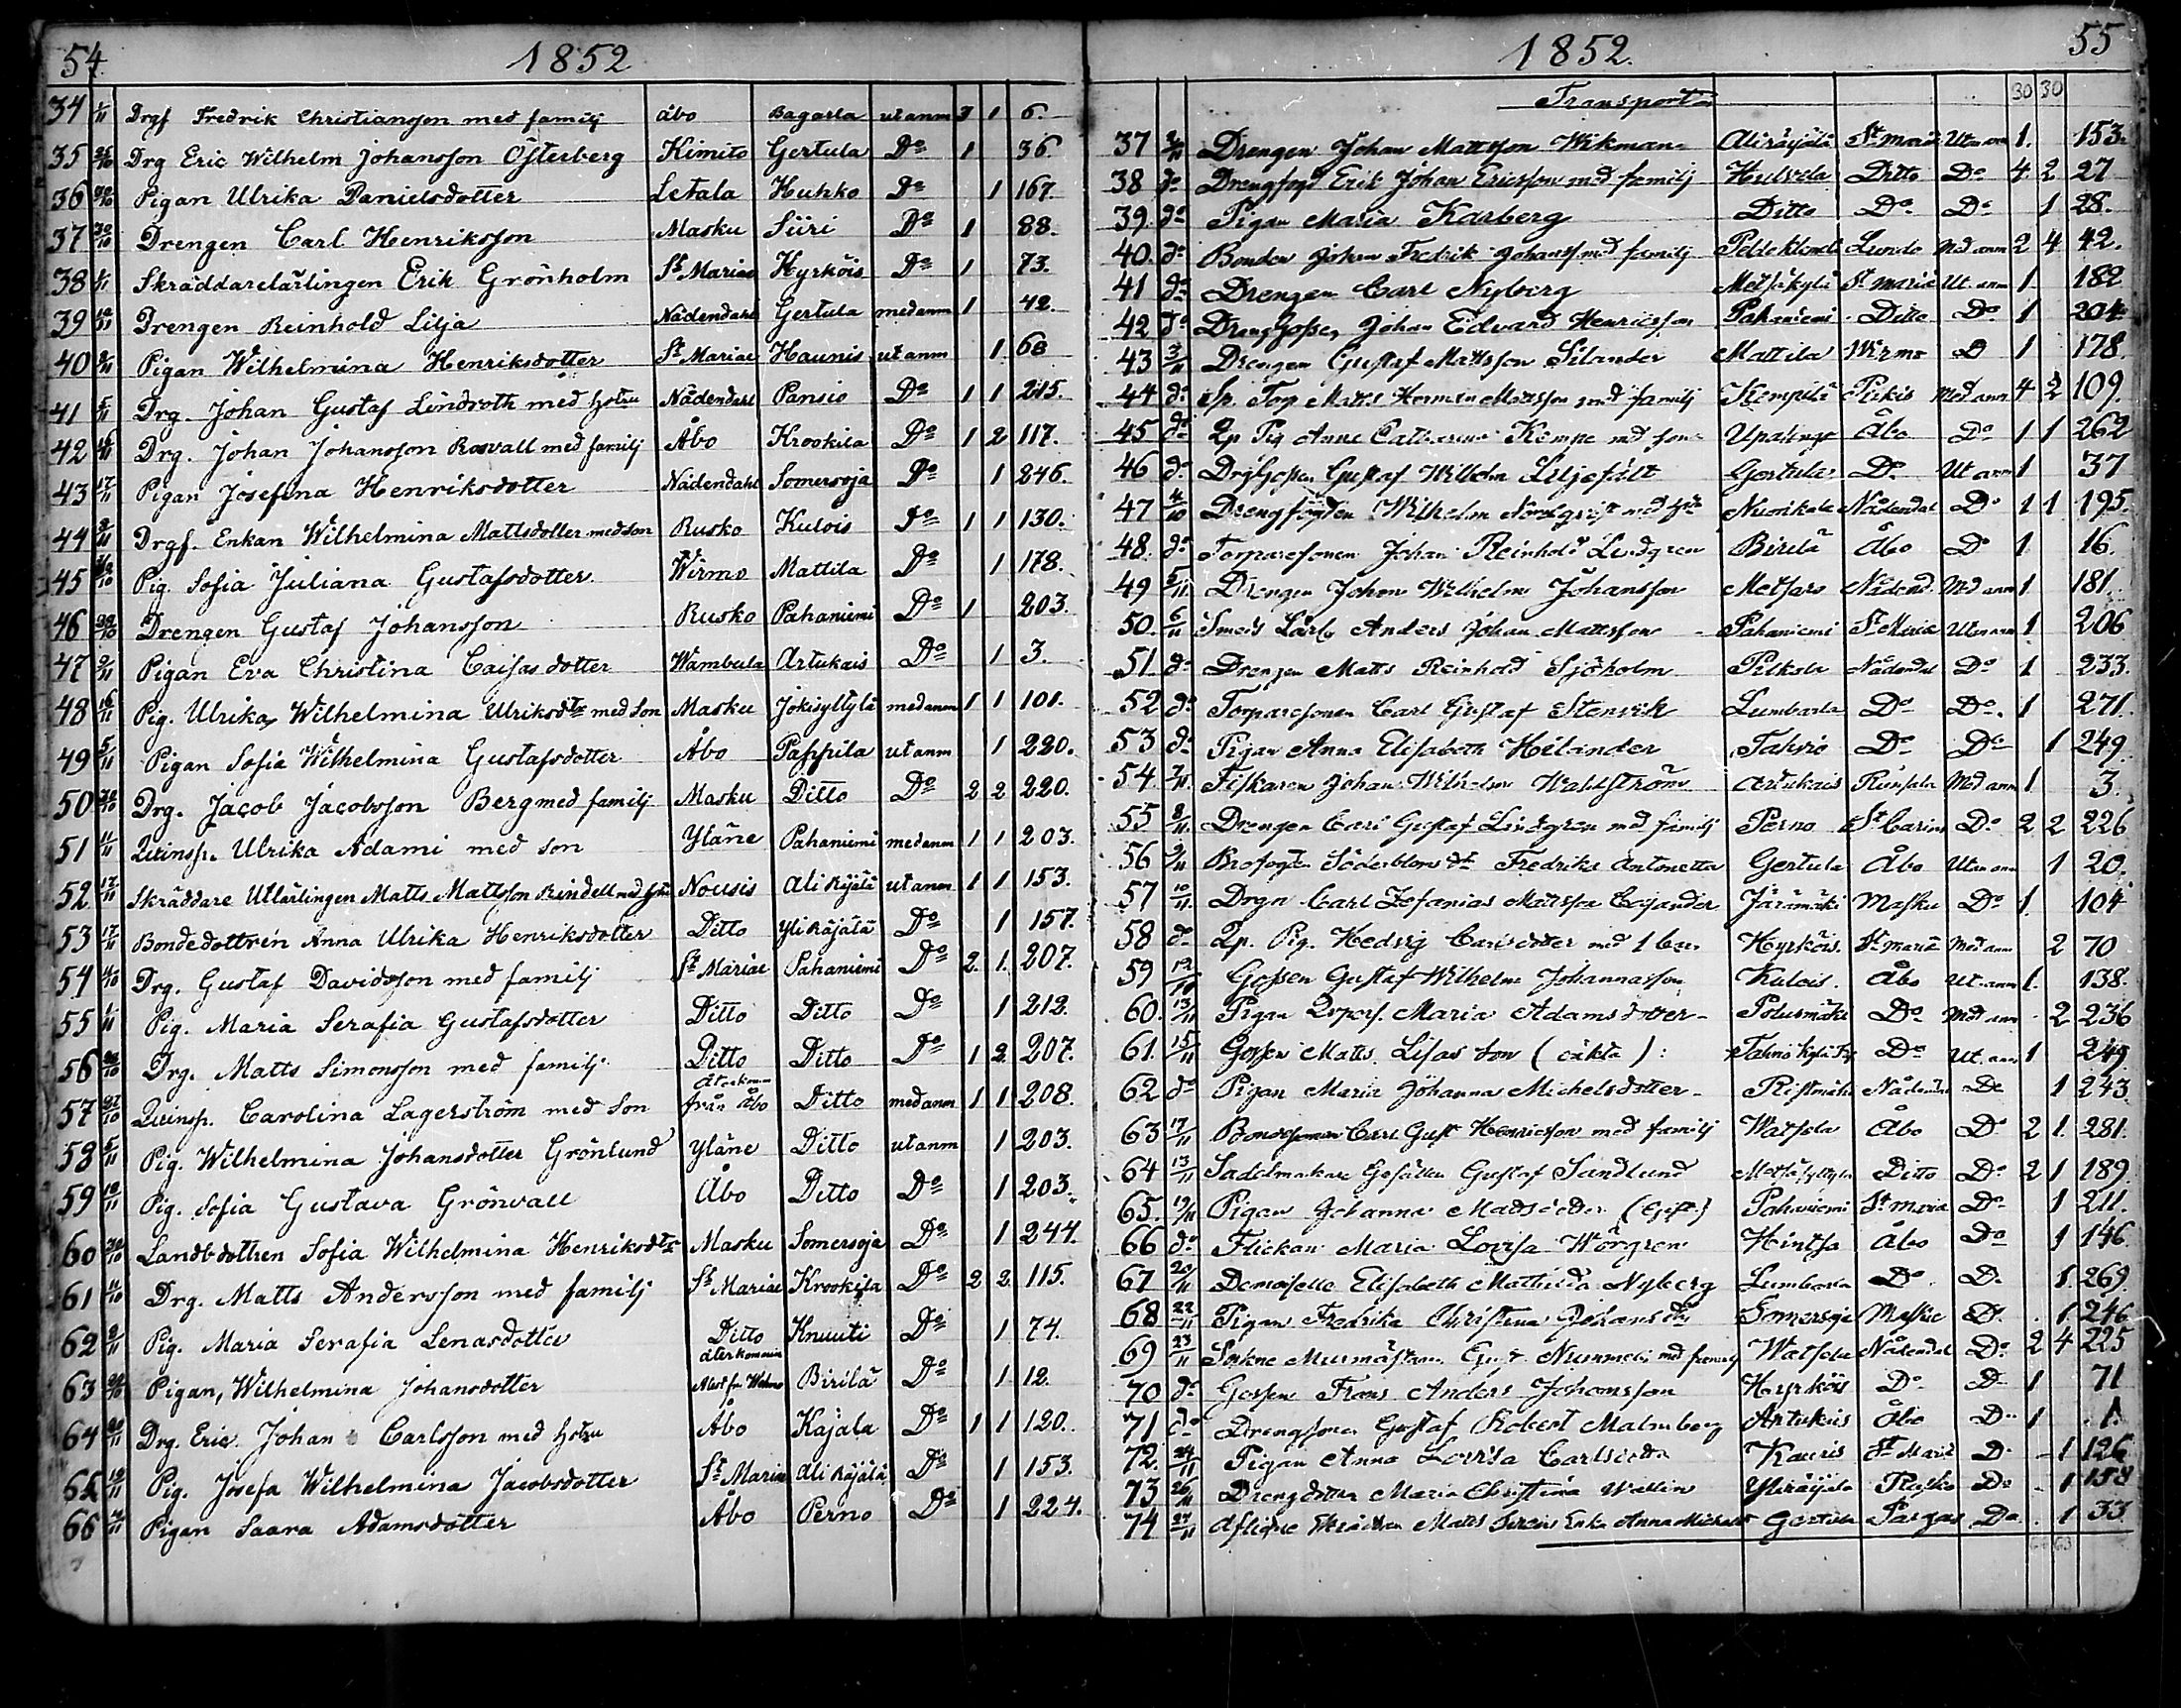 54. 1852
34 1/11 Drgf Fredrik Christiansson med familj åbo Bagarla ut anm 3 1 6.
35 25/10 Drg Eric Wilhelm Johansson Österberg Kimito Gertula Do 1 36.
36 30/10 Pigan Ulrika Danielsdotter Letala Huhko Do 1 167.
37 30/10 Drengen Carl Henriksson Masku Siiri Do 1 88.
38 1/11 Skräddarelärlingen Erik Grönholm St Mariae Hyrköis Do 1 73.
39 12/11 Drengen Reinhold Lilja Nådendahl Gertula med anm 1 42.
40 2/11 Pigan Wilhelmina Henriksdotter St Mariae Haunis ut anm 1 60
41 5/11 Drg. Johan Gustaf Lindroth med hstru Nådendahl Pansio Do 1 1 215.
42 4/11 Drg. Johan Johansson Rosvall med familj Åbo Krookila Do 1 2 117.
43 17/11 Pigan Josefina Henriksdotter Nådendahl Somersoja Do 1 246.
44 2/11 Drgf. Enkan Wilhelmina Mattsdotter med son Rusko Kulois Do 1 1 130.
45 Pig. Sofia Juliana Gustafsdotter Wirmo Mattila Do 1 178.
46 Drengen Gustaf Johansson Rusko Pahaniemi Do 1 203.
47 2/11 Pigan Eva Christina Caisasdotter Wambula Artukais Do 1 3.
48 16/11 Pig. Ulrika Wilhelmina Ulriksdtr med son Masku Jokisyltylä med anm 1 1 101.
49 5/11 Pigan Sofia Wilhelmina Gustafsdotter Åbo Pappila ut anm 1 220.
50 Drg. Jacob Jacobsson Berg med familj Masku Ditto Do 2 2 220.
51 11/11 Qvinsp. Ulrika Adami med son Yläne Pahaniemi med anm 1 1 203.
52 17/11 Skräddare Utlärlingen Matts Mattsson Rindell med hstru Nousis Ali Räjälä ut anm 1 1 153.
53 17/11 Bondedottren Anna Ulrika Henriksdotter Ditto Yli Räjälä Do 1 157.
54 Drg. Gustaf Davidsson med familj St Mariae Pahaniemi Do 2. 1. 207.
55 1/11 Pig. Maria Serafia Gustafsdotter Ditto Ditto Do 1 212.
56 Drg. Matts Simonsson med familj Ditto Ditto Do 1 2 207.
57 Qvinsp. Carolina Lagerström med son återkom från åbo Ditto med anm 1 1 208.
58 5/11 Pig. Wilhelmina Johansdotter Grönlund Yläne Ditto ut anm 1 203.
59 Pig. Sofia Gustava Grönvall Åbo Ditto Do 1 203.
60 Landbdottren Sofia Wilhelmina Henriksdtr Masku Somersoja Do 1 244.
61 11/10 Drg. Matts Andersson med familj St Mariae Krookila Do 2 2 115.
62 2/11 Pig. Maria Serafia Lenasdotter Ditto Knuuti Do 1 74.
63 Pigan, Wilhelmina Johansdotter återkommen Birilä Do 1 12.
64 20/11 Drg. Eric Johan Carlsson med hstru Åbo Kajala Do 1 1 120.
65 19/11 Pig. Josefa Wilhelmina Jacobsdotter St Mariae Ali Räjälä Do 1 153.
66 Pigan Saara Adamsdotter Åbo Perno Do 1 224.
1852. 55
Transport 30 30
37 2/11 Drengen Johan Mattsson Wikman Aliräjälä St Mariæ Utan anm 1. 153.
38 do Drengfogd Erik Johan Ericsson med familj Huhvela Ditto Do 4 2 27
39 do Pigan Maria Karberg Ditto Do Do 1 28.
40. do Bonden Johan Fredrik Johanss med familj Lundo Med anm 2 4 42.
41 do Drengen Carl Nyberg Metsäkylä St Mariæ Ut. anm 1 182
42 do DrengGossen Johan Edvard Henricsson Pahaniemi Ditto Do 1 204
43 3/11 Drengen Gustaf Mattsson Silander Mattila Wirmo D 1 178.
44 do Sp. Torp Matts Herman Mattsson med familj Kempilä Pikis Med anm 4 2 109.
45 do Qp Pig Anna Catharina Kempe med son Upalinge Åbo Do 1 1 262
46 do DrgGossen Gustaf Wilhelm Liljefält Gertula Do Ut anm 1 37
47 4/10 Drengfogden Wilhelm Nordqvist med hstr Nuorikala Nådendal Do 1 1 195.
48. do Torparesonen Johan Reinhold Lindgren Birilä Åbo Do 1 16.
49 5/11 Drengen Johan Wilhelm Johansson Metsaro Nådend. Med anm 1 181.
50. 6/11 Smeds Lärl. Anders Johan Mattsson Pahaniemi St Mariæ Utan anm 1 206
51 do Drengen Matts Reinhold Sjöholm Pilksla Nådendal Do 1 233.
52 do Torparesonen Carl Gustaf Stenvik Lumbarla Do Do. 1 271.
53 do Pigan Anna Elisabeth Hilander Tahvio Do Do 1 249.
54. 7/11 Fiskaren Johan Wilhelm Wahlström Artukais Runsala Med anm 1 3.
55 8/11 Drengen Carl Gustaf Lindgren med familj Perno St Carins Do 2 2 226
56 9/11 Brofogden Söderbloms dr Fredrika Antonetta Gertula Åbo Utan anm 1 20.
57 10/11 Drgn Carl Zefanias Mattsson Cajander Järämäki Masku Do 1. 104
58 do Qp. Pig. Hedvig Carlsdotter med 1 barn Hyrköis. St Mariæ Med anm 2 70
59 Gossen Gustaf Wilhelm Johannasson Kulois. Åbo Ut. anm 1. 138.
60. 13/11 Pigan Maria Adamsdotter Polusmäki Do Med anm 2 236
61. 15/11 Gossen Matts Lisas Son (oäkta): Do Ut. anm 1 249
62 do Pigan Maria Johanna Michelsdotter Ristimäki Nådendal Do 1 243
63 17/11 Bondesonen Carl Gust Henricsson med familj Watsela Åbo Do 2 1. 281.
64 13/11 Sadelmakare Gesällen Gustaf Sandlund Ditto Do 2 1 189.
65. 19/11 Pigan Johanna Madsdotter (Gift) Pahaniemi St Maria Do 1 211.
66 do Flickan Maria Lovisa Wörgren Hintsa Åbo Do 1 146.
67 20/11 Demoiselle Elisabeth Mathilda Nyberg Lumbarla Do D. 1. 269.
68 22/11 Pigan Fredrika Christina Johansdtr Somersoja Masku D. 1 246
69 23/11 Sockne Murmästaren Gust Nummelin med familj Watsela Nådendal Do 2 4 225
70 do Gossen Frans Anders Johansson Hyrköis Do D 1 71
71 do Drengsonen Gustaf Robert Malmberg Artukais Åbo D 1 1.
72. 24/11 Pigan Anna Lovisa Carlsdotter Kauris St Mariæ D. 1 126
73 26/11 Drengdottren Maria Christina Wallin Yliräjälä Rusko Do 1 158
74 27/11 Aflidne Matts Enka Anna Gertula Pargas Do. 1 33
63